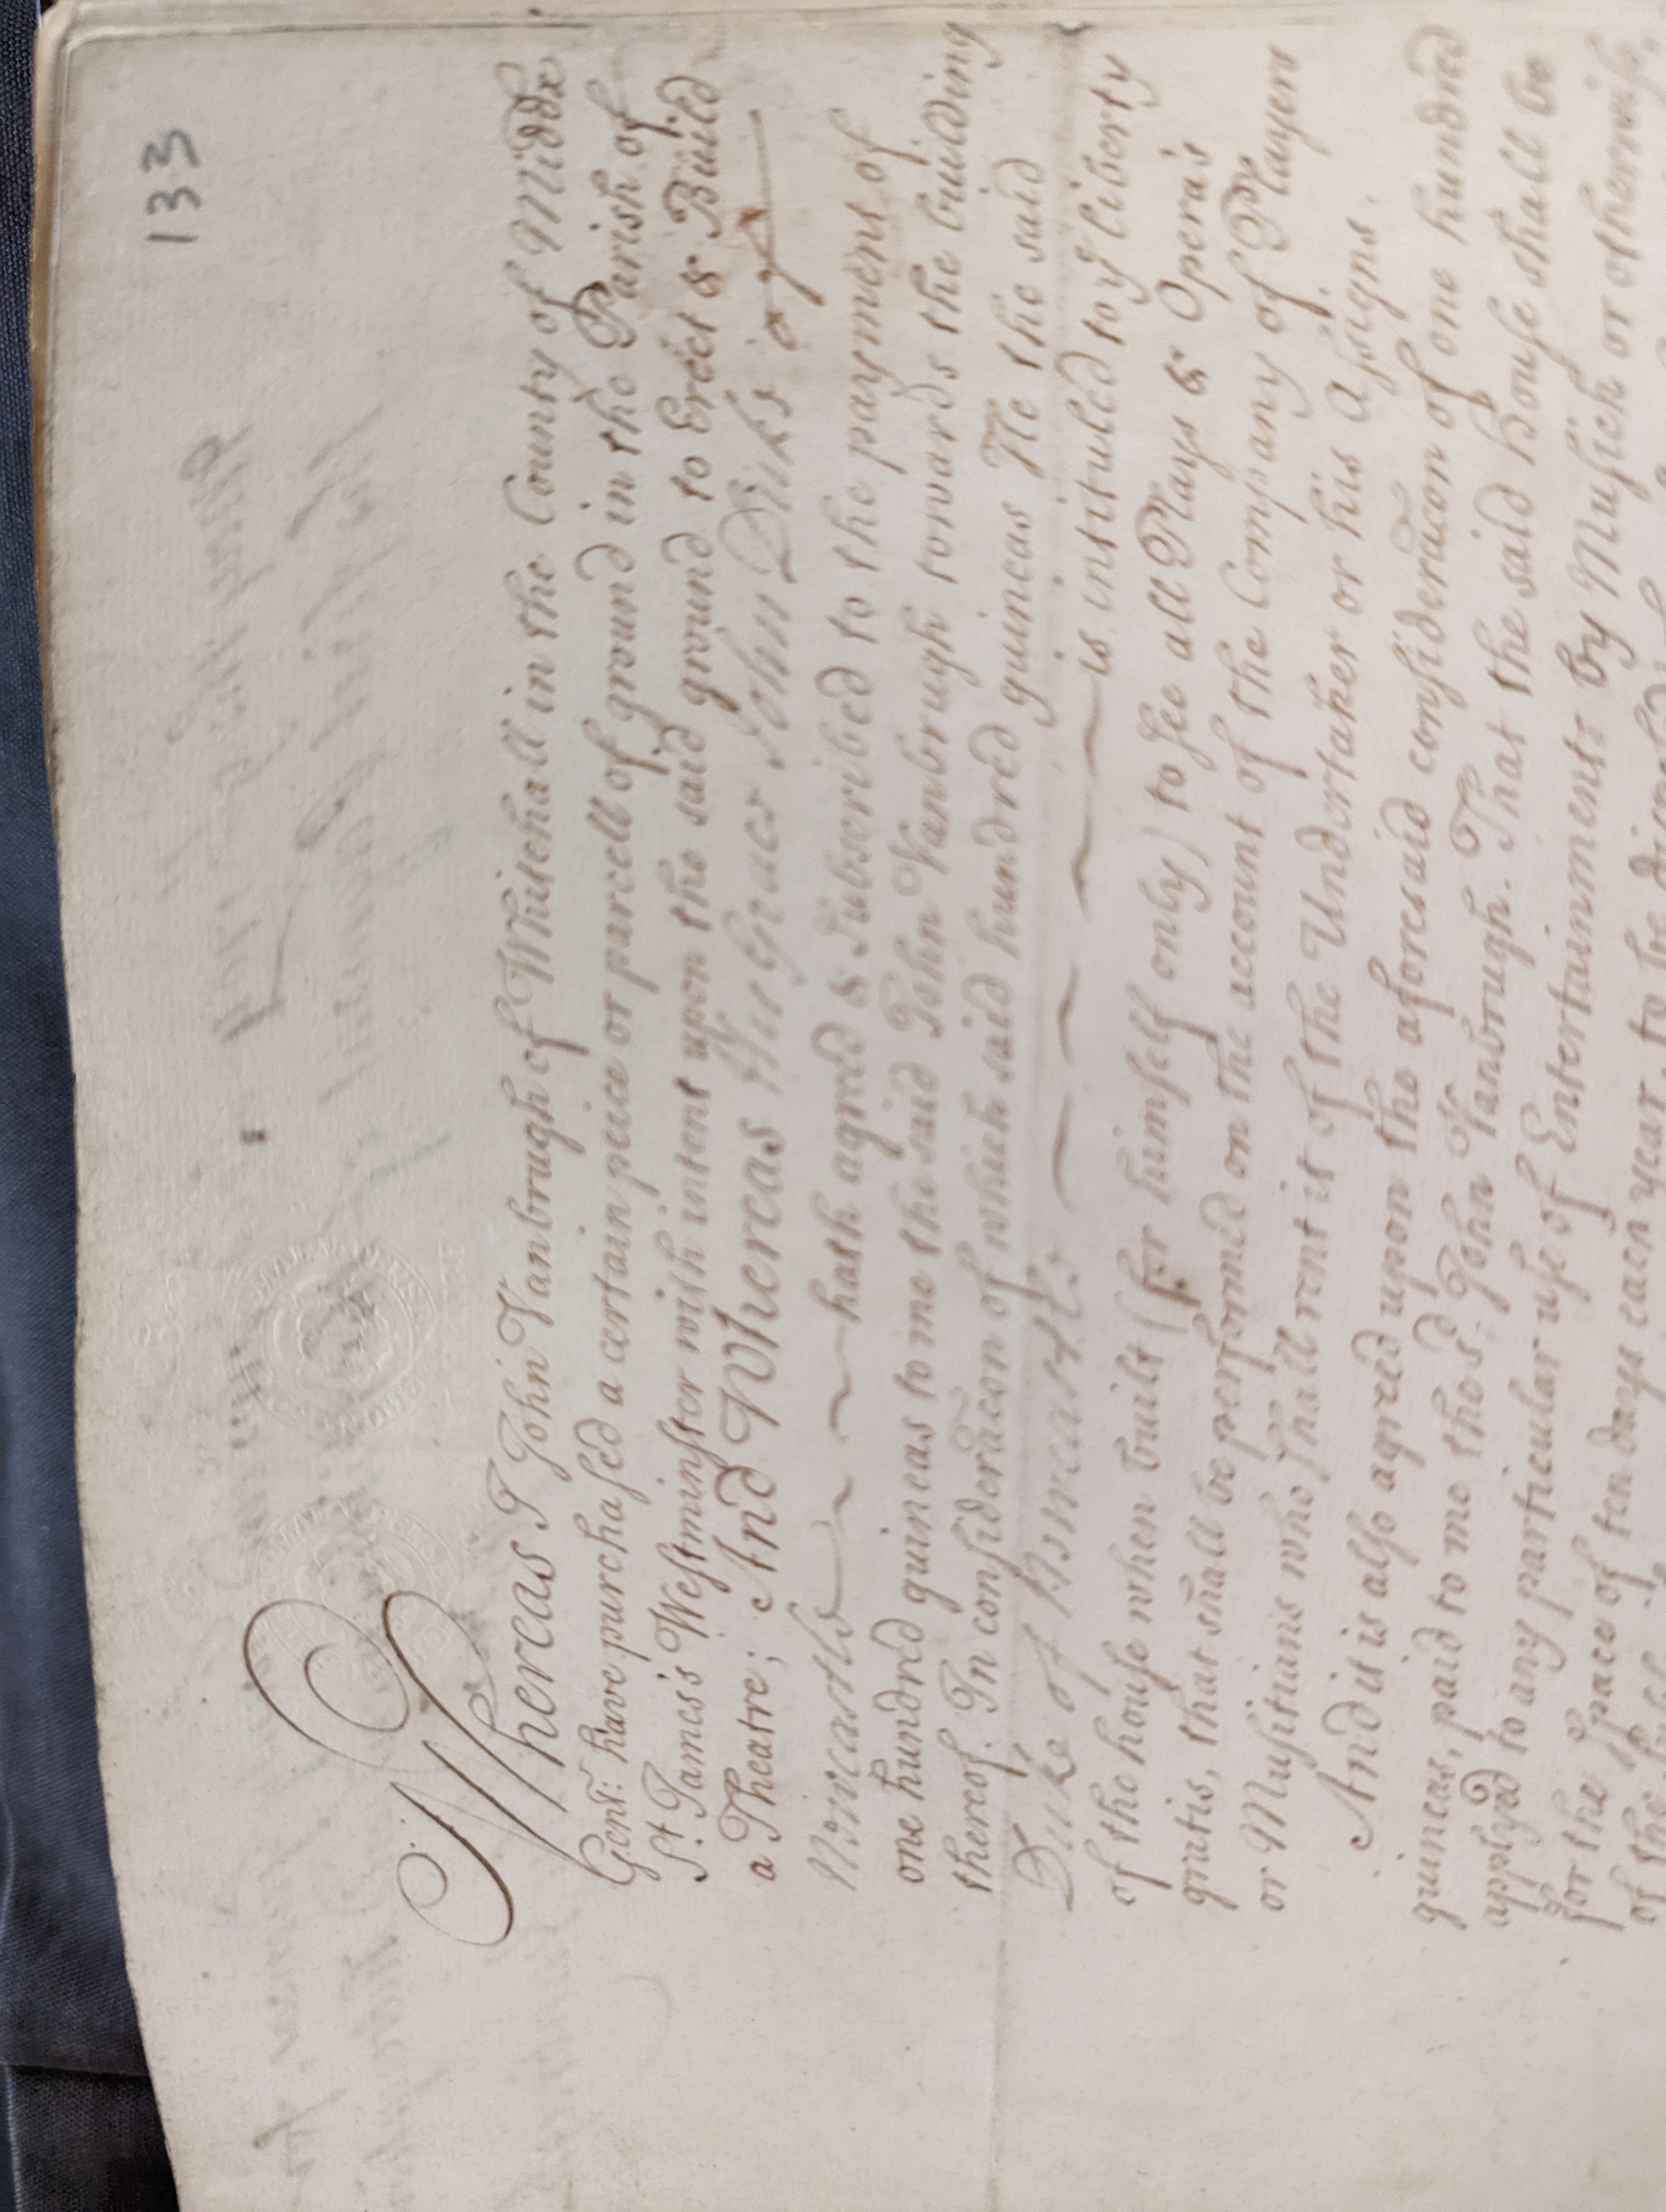 133
Whereas I John Vanbrugh of Whitehall in the County of Middx
Gent: have purchased a certain peice or parcell of ground in the Parish of
St. James's Westminster with intent upon the said ground to Erect & Build
a Theatre; And Whereas His Grace John Duke of
Newcastle hath agreed & Subscribed to the payment of
one hundred guineas to me the said John Vanbrugh towards the building
thereof. In consideracon of which said hundred guineas He the said
Duke of Newcastle is intituled to ye liberty
of the house when built (for himself only) to see all Plays & Opera's
gratis, that shall be performed on the account of the Company of Players
or Musitians who shall rent it of the Undertaker or his Assigns.
And it is also agreed upon the aforesaid consideracon of one hundred
guineas, paid to me the sd. John Vanbrugh. That the said House shall be
applyed to any particular use of Entertainments by Musick or otherwise
for the space of ten days each year, to be
of the